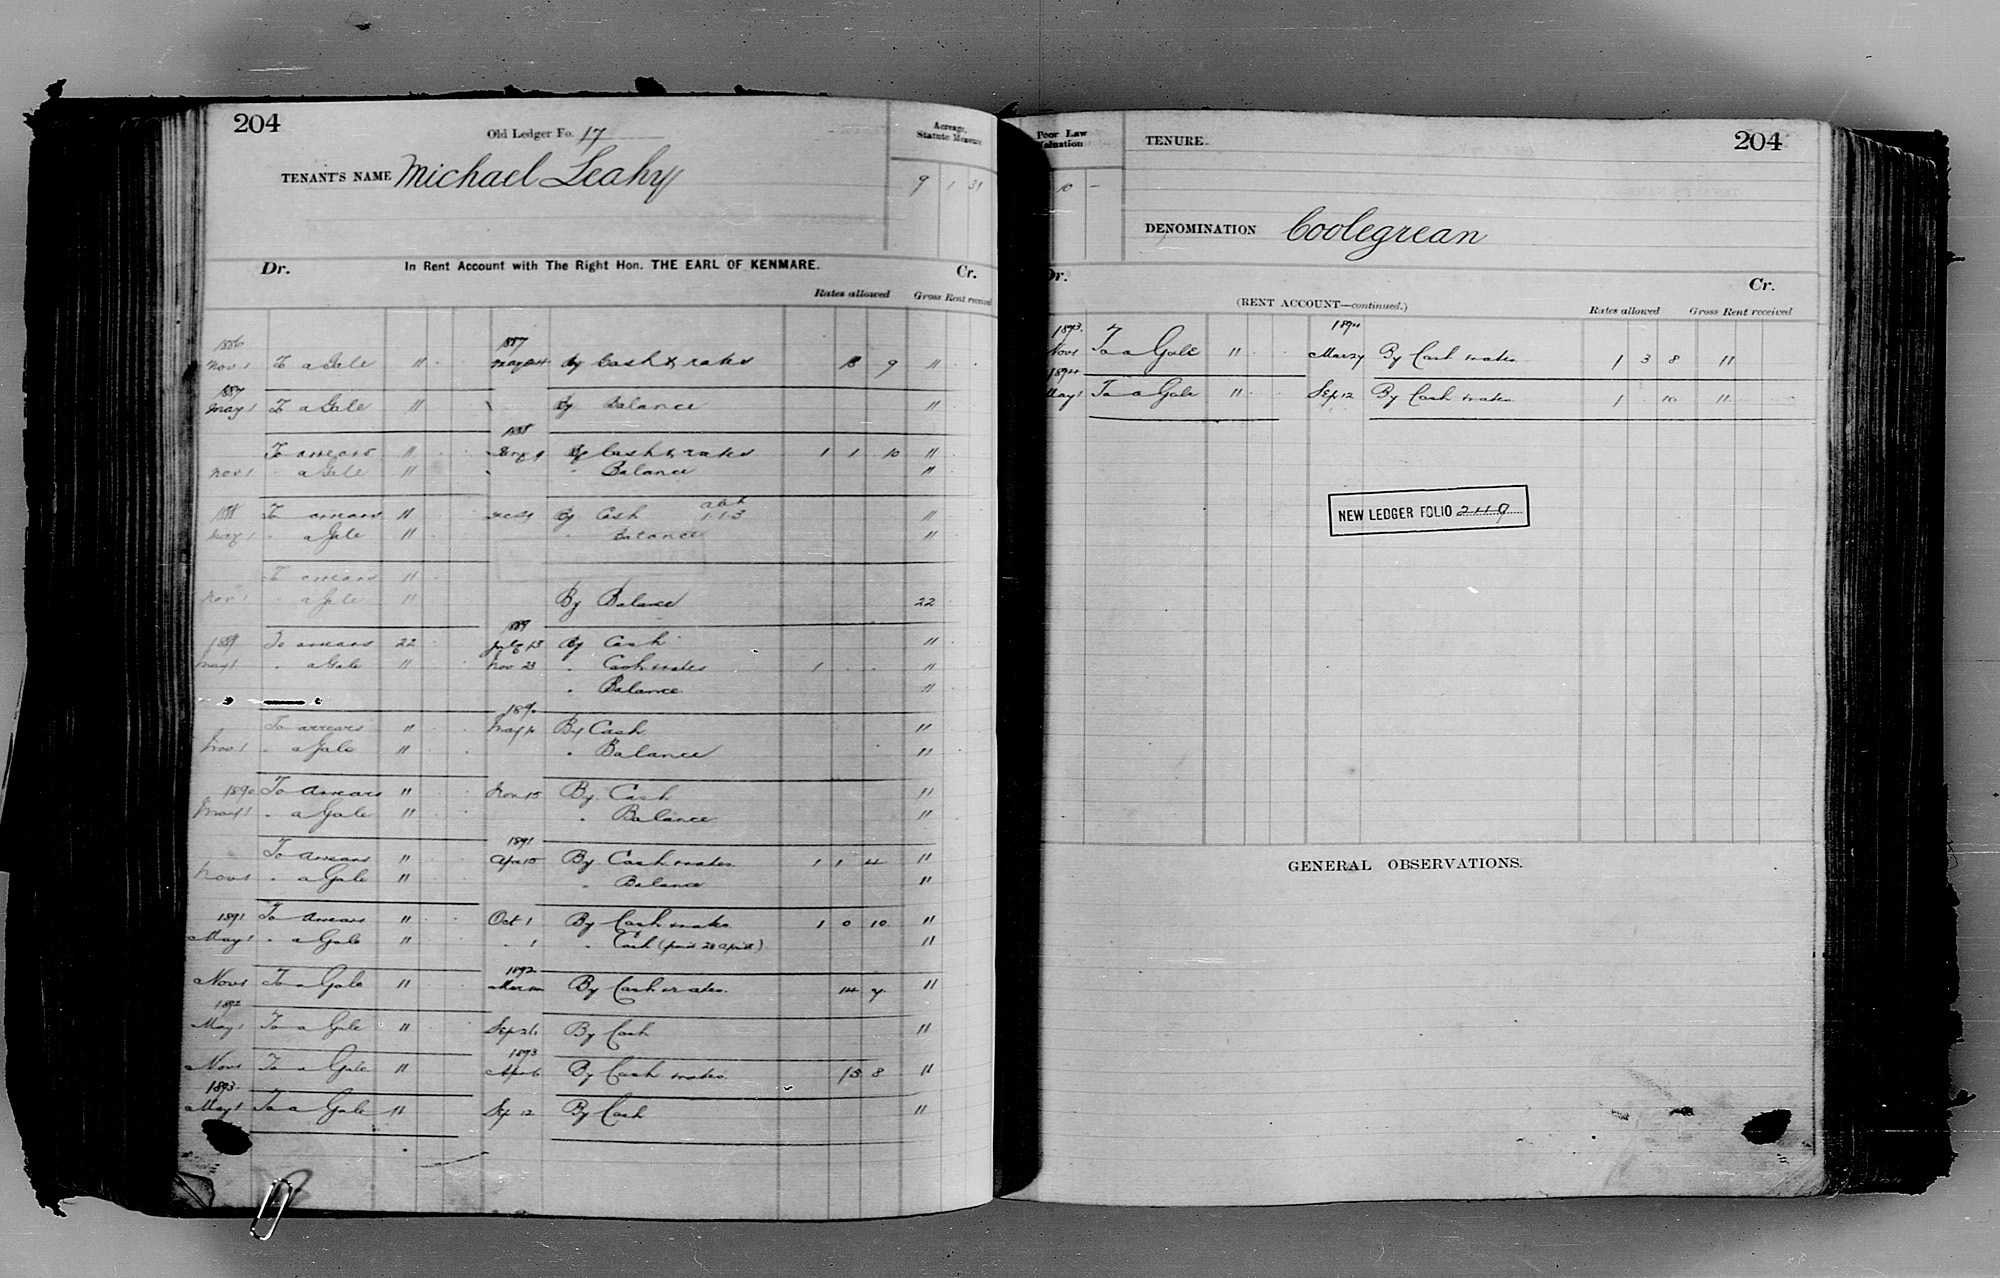 204
Old Ledger Fo. 17
Acreage, Statute Measure
TENANT'S NAME Michael Leahy
9 1 31
Dr. In Rent Account with The Right Hon. THE EARL OF KENMARE. Cr.
Rates allowed Gross Rent received
1886 1887
Nov 1 To a Gale 11 By Cash & rates 9 11
1887
May 1 To a Gale 11 By Balance 11
1888
To arrears 11 By Cash & rates 1 1 10 11
Nov 1 " a Gale 11 " Balance 11
1888 To arrears 11 Dec 21 By Cash 1.1.3 11
May 1 " a Gale 11 " Balance 11
To arrears 11
Nov 1 " a Gale 11 By Balance 22
1889
1889 To arrears 22 July 13 By Cash 11
May 1 " a Gale 11 Nov 23 " Cash & rates 1 . . 11
" Balance 11
1890
To arrears 11 May 10 By Cash 11
Nov 1 " a Gale 11 " Balance 11
1890 To arrears 11 Nov 15 By Cash 11
May 1 " a Gale 11 " Balance 11
1891
To arrears 11 Apr 15 By Cash & rates 1 1 4 11
Nov 1 " a Gale 11 " Balance 11
1891 To arrears 11 Oct 1 By Cash & rates 1 0 10 11
May 1 " a Gale 11 " 1 " Cash (paid 28 April) 11
1892
Nov 1 To a Gale 11 By Cash & rates 14 7 11
1892
May 1 To a Gale 11 Sep 26 By Cash 11
1893
Nov 1 To a Gale 11 Apr 6 By Cash & rates 15 8 11
1893
May 1 To a Gale 11 Sep 12 By Cash 11
204
Poor Law Valuation
10 -
TENURE
DENOMINATION Coolegrean
Dr. Cr.
(RENT ACCOUNT—continued.)
Rates allowed Gross Rent received
1893 1894
Nov 1 To a Gale 11 Mar 27 By Cash & rates 1 3 8 11
1894
May 1 To a Gale 11 Sep 12 By Cash & rates 1 . 10 11
NEW LEDGER FOLIO 249
GENERAL OBSERVATIONS.